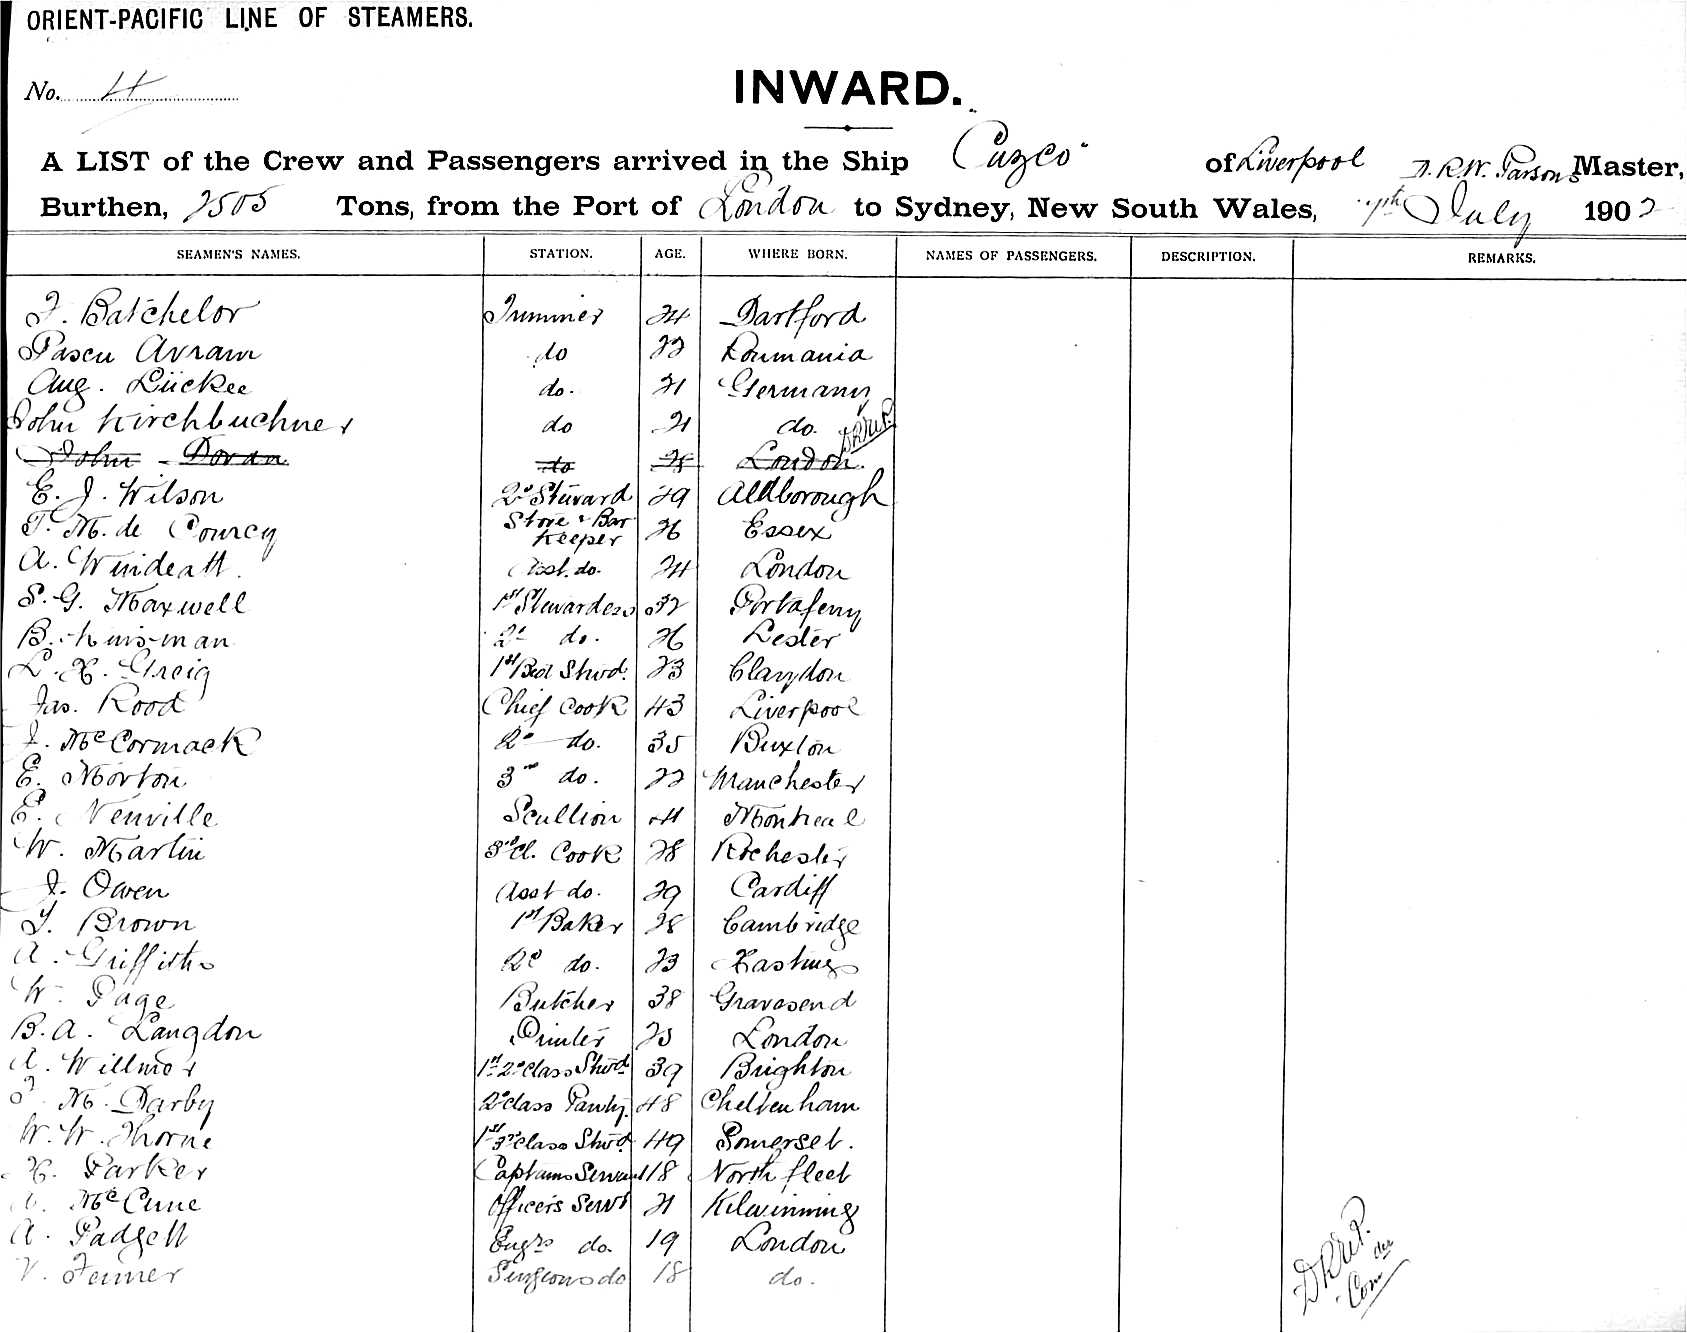 ORIENT-PACIFIC LINE OF STEAMERS.
No. 4
INWARD.
A LIST of the Crew and Passengers arrived in the Ship Cuzco of Liverpool D.R.W. Parsons Master,
Burthen, 2505 Tons, from the Port of London to Sydney, New South Wales, July 1902
SEAMEN'S NAMES. STATION. AGE. WHERE BORN. NAMES OF PASSENGERS. DESCRIPTION. REMARKS.
F. Batchelor Trimmer 24 Dartford
Pascu Avram do 22 Roumania
Aug. Lückee do. 21 Germany
John Kirchbuchner do 21 do.
John Doran do 28 London.
E. J. Wilson 2d Steward 29 Aldborough
T. M. de Courcy Store & Bar Keeper 26 Essex
A. Windeatt. Asst. do. 24 London
S. G. Maxwell 1st Stewardess 32 Portaferry
B. Huisman 2d do. 26 Lester
L. H. Greig 1st Bed Stwd. 23 Claydon
Jas. Rood Chief Cook 43 Liverpool
J. McCormack 2d do. 35 Buxton
E. Morton 3rd do. 22 Manchester
E. Nenville Scullion 21 Montreal
W. Martin 3d Cl. Cook 28 Rochester
J. Owen Asst do. 29 Cardiff
T. Brown 1st Baker 28 Cambridge
A. Griffiths 2d do. 23 Hastings
W. Page Butcher 38 Gravesend
B. A. Langdon Printer 25 London
A. Willmor 1st 2d class Stwd 39 Brighton
F. M. Darby 2d class Pantry. 48 Cheltenham
W. W. Thorne 1st 3rd class Stwd. 49 Somerset.
H. Parker Captains Servant 18 North fleet
McCune Officers Servt 21 Kilwinning
A. Padgett Engrs do. 19 London
V. Fenner Surgeons do 18 do.
D.R.W.P.
Com